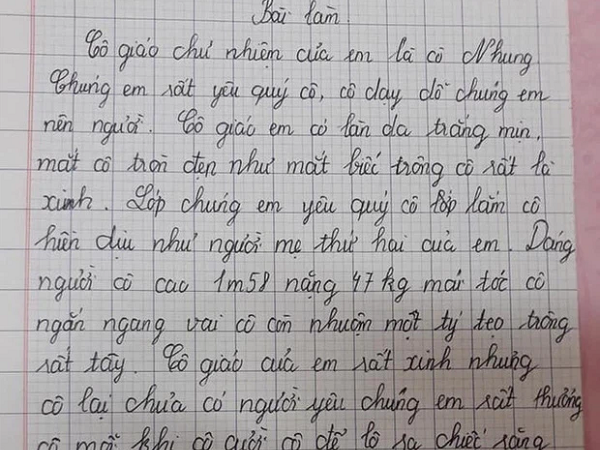 Bài làm.
Cô giáo chư nhiệm của em là cô Nhung
Chúng em rất yêu quý cô, cô dạy dỗ chúng em
nên người. Cô giáo em có làn da trắng mịn,
mắt cô tròn đẹn như mắt biếc trông cô rất là
xinh. Lớp chúng em yêu quý cô lắm cô
hiền dịu như người mẹ thứ hai của em. Dáng
người cô cao 1m58 nặng 47 kg mái tóc cô
ngắn ngang vai cô còn nhuộm một tý tẹo trông
rất tây. Cô giáo của em rất xinh nhưng
cô lại chưa có người yêu chúng em rất thương
cô mỗi khi cô cười cô để lộ ra chiếc răng